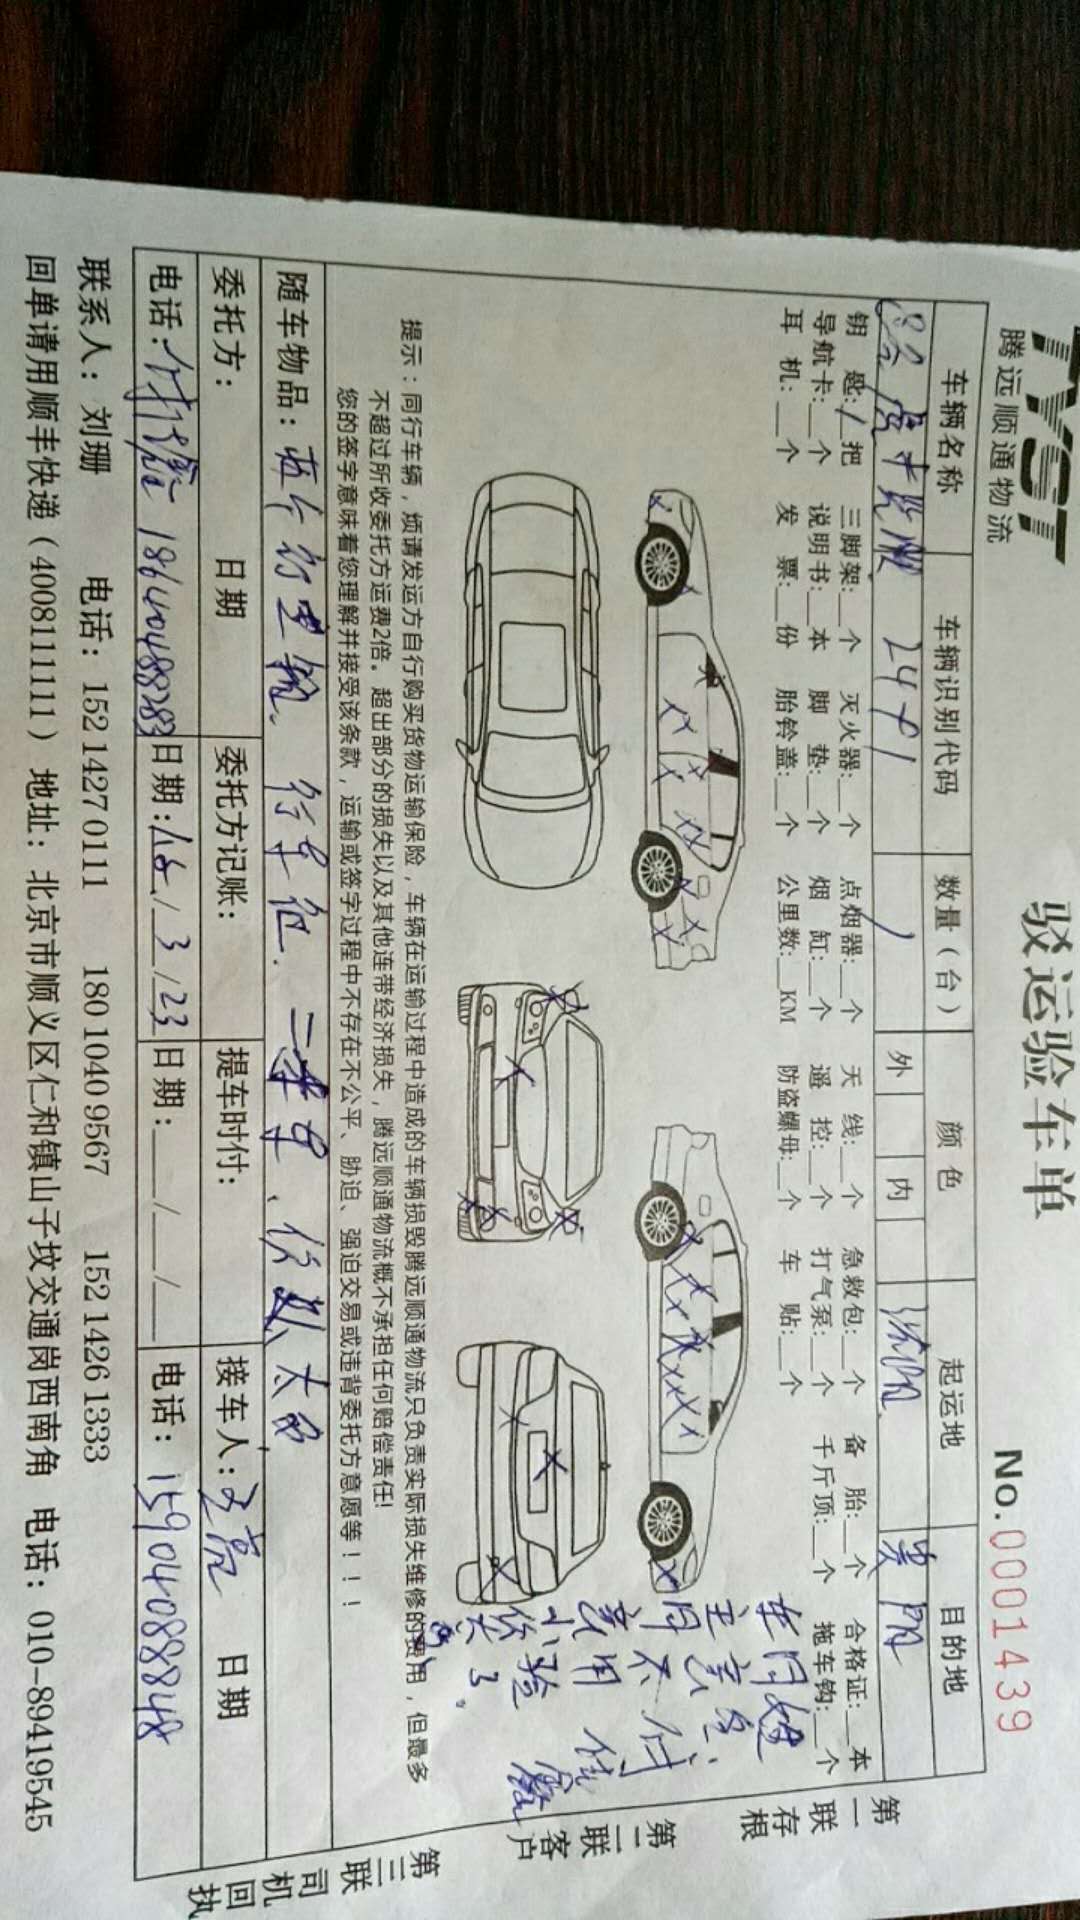 TYST
腾远顺通物流
驳运验车单
No.0001439
车辆名称 车辆识别代码 数量（台） 颜色 起运地 目的地
2491 1 外 内 沈阳
钥匙:1把 三脚架:__个 灭火器:__个 点烟器:__个 天线:__个 急救包:__个 备胎:__个 合格证:__本
导航卡:__个 说明书:__本 脚垫:__个 烟缸:__个 遥控:__个 打气泵:__个 千斤顶:__个 拖车钩:__个
耳机:__个 发票:__份 胎铃盖:__个 公里数:__KM 防盗螺母:__个 车贴:__个
提示：同行车辆，烦请发运方自行购买货物运输保险，车辆在运输过程中造成的车辆损毁腾远顺通物流只负责实际损失维修的费用，但最多
不超过所收委托方运费2倍。超出部分的损失以及其他连带经济损失，腾远顺通物流概不承担任何赔偿责任!
您的签字意味着您理解并接受该条款，运输或签字过程中不存在不公平、胁迫、强迫交易或违背委托方意愿等！！！
随车物品：行李箱、行车证
委托方： 日期 委托方记账： 提车时付： 接车人： 日期
电话: 18640488283 日期:16/3/23 日期:__/__/__ 电话：15904088848
联系人：刘珊 电话：152 1427 0111 180 1040 9567 152 1426 1333
回单请用顺丰快递（4008111111）地址：北京市顺义区仁和镇山子坟交通岗西南角 电话：010-89419545
第一联存根
第二联客户
第三联司机回执